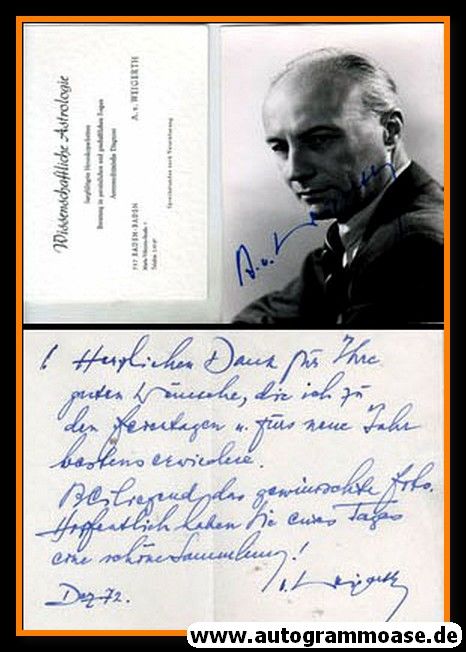 Wissenschaftliche Astrologie
Sorgfältigste Horoskoparbeiten
Beratung in persönlichen und geschäftlichen Fragen
Astromedizinische Diagnose
A. v. WEIGERTH
757 BADEN-BADEN
Maria-Viktoria-Straße
Telefon
Sprechstunden nach Vereinbarung
A. v. Weigerth
Herzlichen Dank für Ihre
guten Wünsche, die ich zu
den Feiertagen u. fürs neue Jahr
bestens erwidere.
Beiliegend das gewünschte Foto.
Hoffentlich haben Sie eines Tages
eine schöne Sammlung!
Dez. 72.
A. v. Weigerth
www.autogrammoase.de